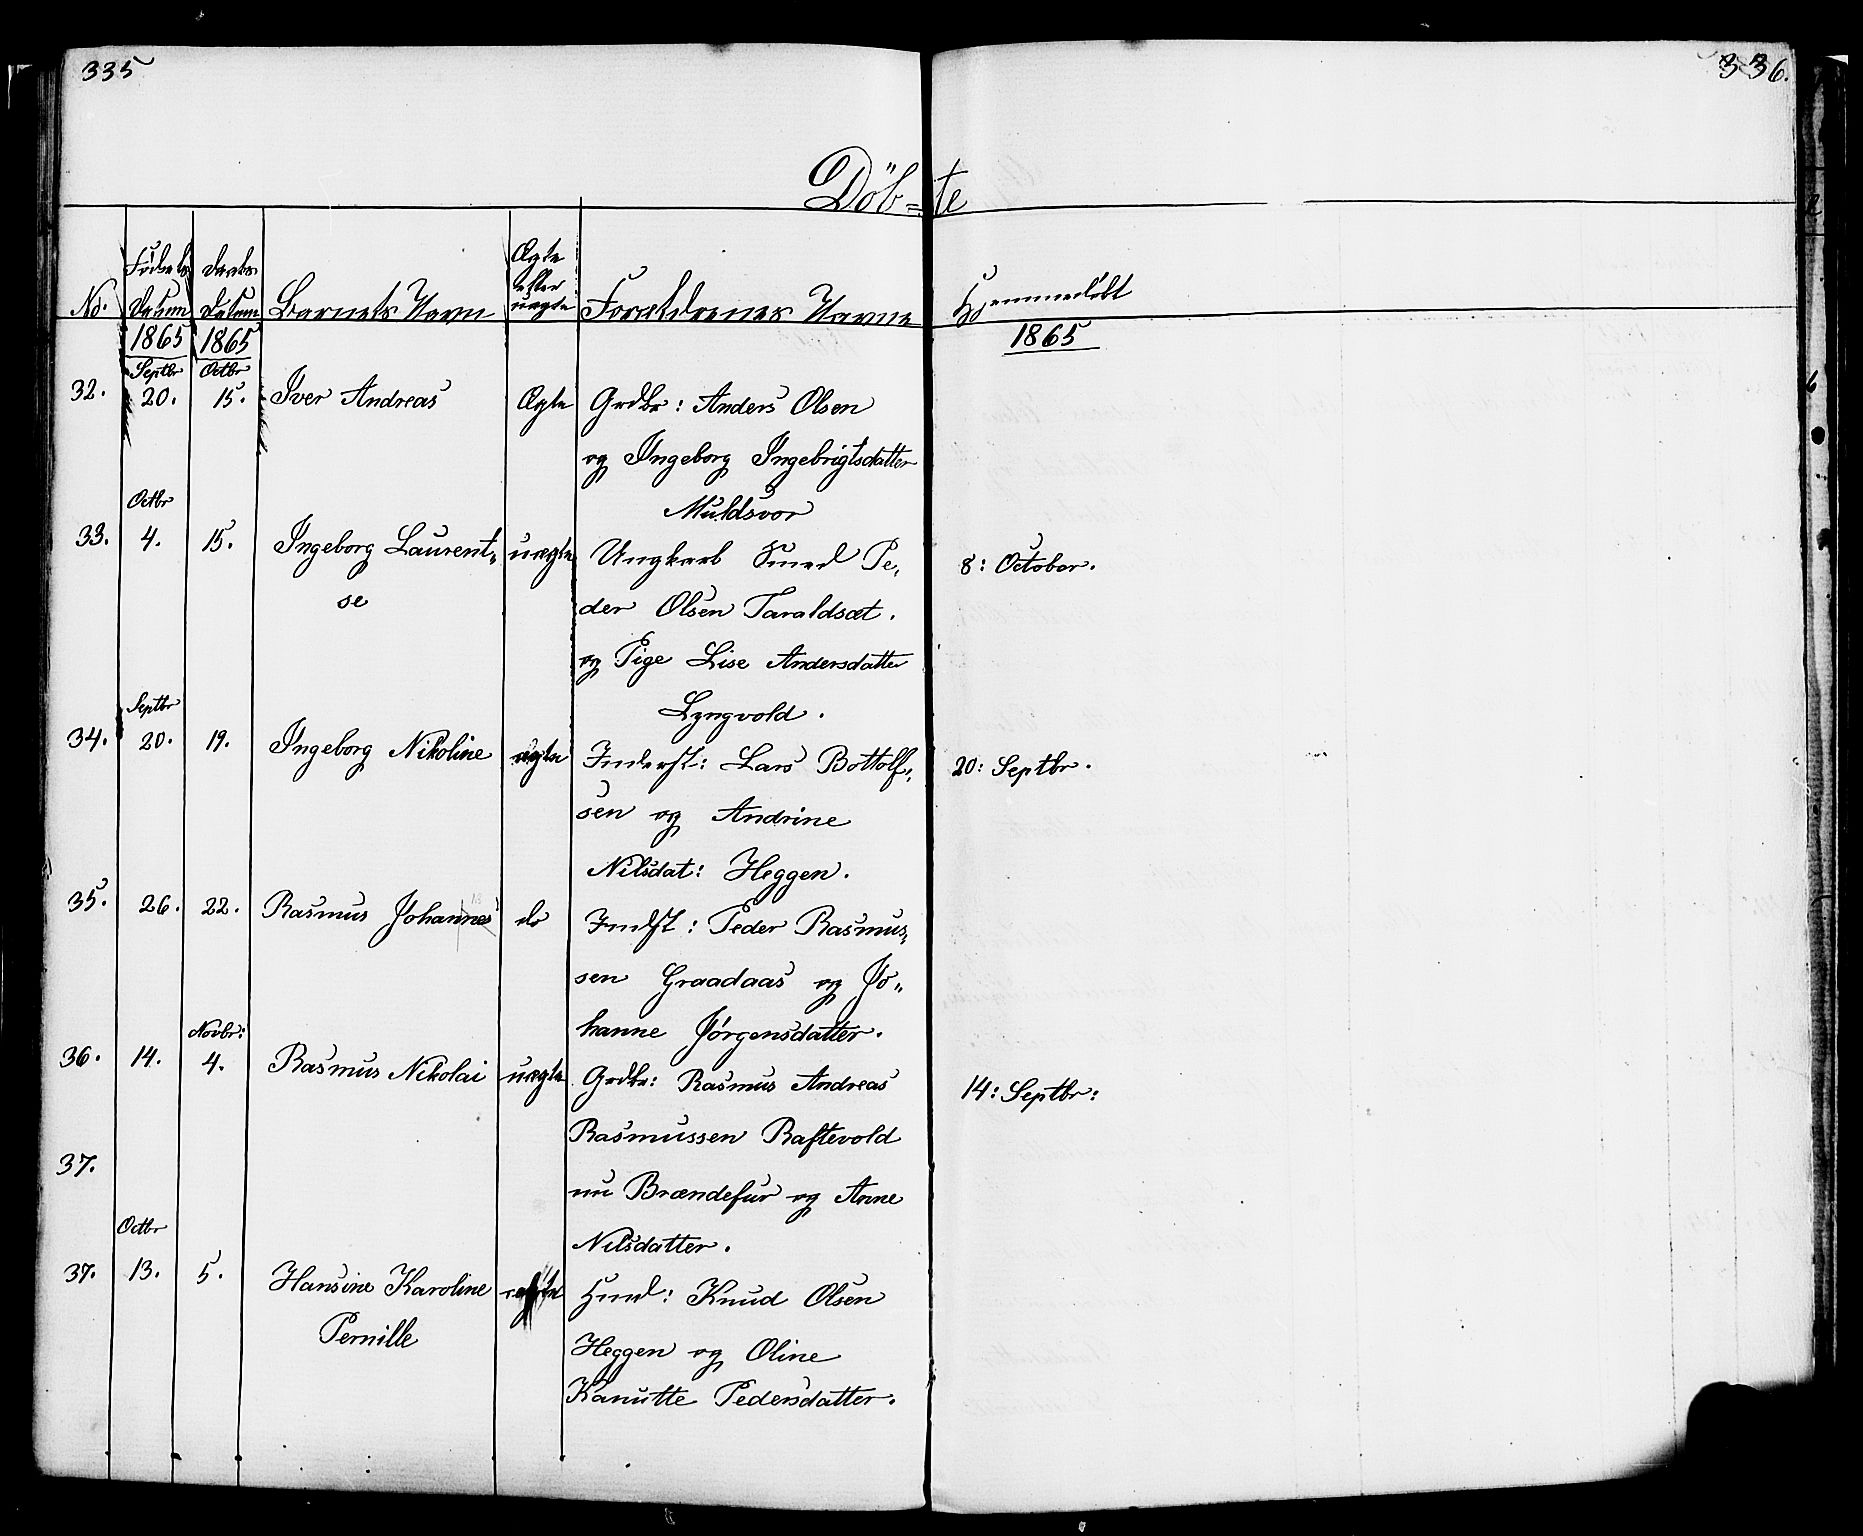 335
336.
Döb=te
No.
Fødsels Datum
Daabs Datum
Barnets Navn
Ægte eller uægte
Forældrenes Navne
Hjemmedøbt
1865
1865
1865
Septbr
Octbr
32. 20. 15. Iver Andreas Ægte Grdbr: Anders Olsen
og Ingeborg Ingebrigtsdatter
Muldsvor
Octbr
33. 4. 15. Ingeborg Laurent„ uægte Ungkarl Smed Pe„ 8: October.
se der Olsen Taraldsæt.
og Pige Lise Andersdatter
Lyngvold.
Septbr
34. 20. 19. Ingeborg Nikoline ægte Inderst: Lars Bottolf„ 20: Septbr.
sen og Andrine
Nilsdat: Heggen.
35. 26. 22. Rasmus Johannes do Indst: Peder Rasmus„
sen Graadaas og Jo„
hanne Jørgensdatter.
Novbr:
36. 14. 4. Rasmus Nikolai uægte Grdbr: Rasmus Andreas 14: Septbr:
Rasmussen Raftevold
37.
nu Brændefur og Anne
Nilsdatter.
Octbr
37. 13. 5. Hansine Karoline ægte Hmd: Knud Olsen
Pernille
Heggen og Oline
Kanutte Pedersdatter.